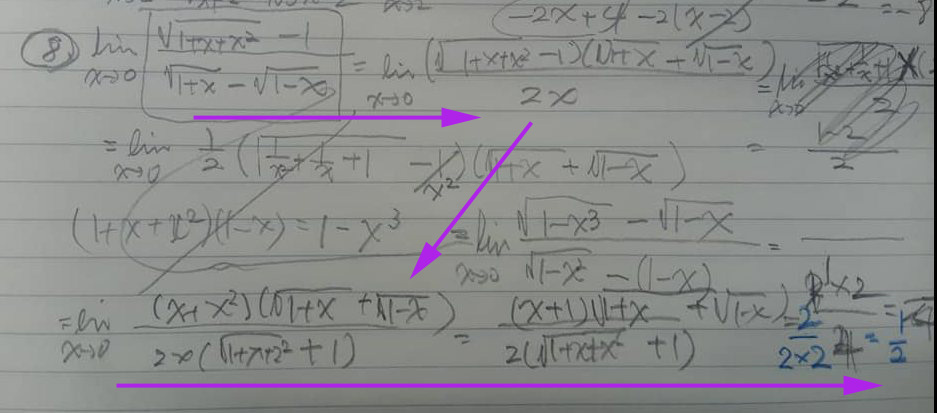 -2x+4 -2(x-2) = -8
⑧ lim x→0 (√(1+x+x²) -1)/(√(1+x) - √(1-x)) = lim x→0 (√(1+x+x²) -1)(√(1+x) + √(1-x))/2x = lim x→0
= lim x→0 1/2 (√(1/x² + 1/x +1) - 1/x²)(√(1+x) + √(1-x)) = √2/2
(1+x+x²)(1-x) = 1-x³ = lim x→0 (√(1-x³) - √(1-x))/(√(1-x²) - (1-x)) =
= lim x→0 (x+x²)(√(1+x) + √(1-x))/2x(√(1+x+x²) +1) = (x+1)(√(1+x) + √(1-x))/2(√(1+x+x²) +1) = 2/2×2 = 1/2